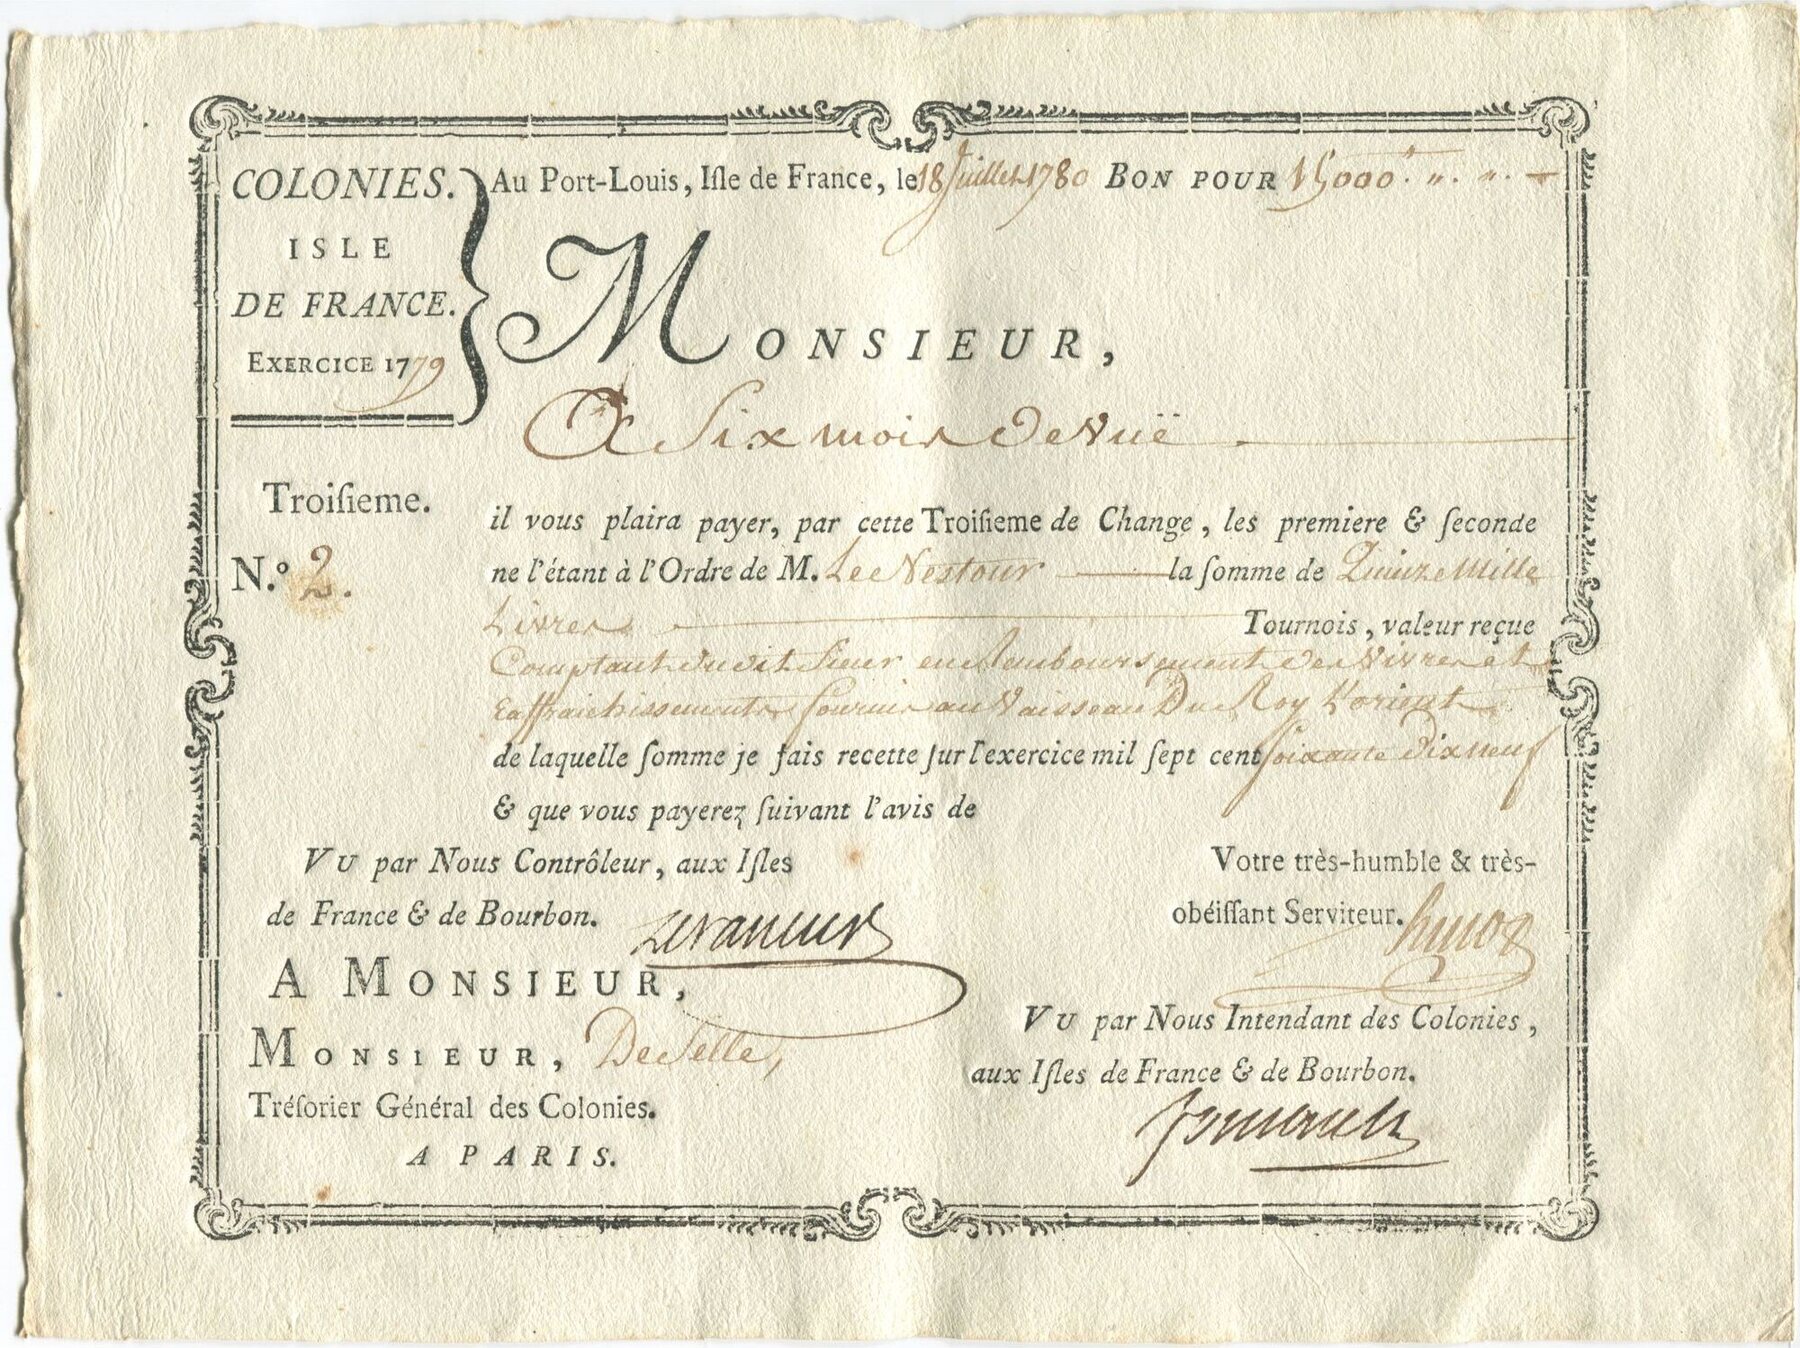 COLONIES.
ISLE
DE FRANCE.
EXERCICE 1779
Au Port-Louis, Iſle de France, le 18 Juillet 1780 BON POUR 15000.
MONSIEUR,
A Six mois de vuë
Troiſieme.
N.º 2.
il vous plaira payer, par cette Troiſieme de Change, les premiere & ſeconde
ne l'étant à l'Ordre de M. Le Nestour la ſomme de Quinze Mille
Livres Tournois, valeur reçue
Comptant dudit Sieur en Remboursement des vivres et
Raffraichissements fournis au Vaisseau Du Roy L'orient
de laquelle ſomme je fais recette ſur l'exercice mil ſept cent soixante Dix neuf
& que vous payerez ſuivant l'avis de
VU par Nous Contrôleur, aux Iſles
de France & de Bourbon.
Votre très-humble & très-
obéiſſant Serviteur.
A MONSIEUR,
MONSIEUR, De Selle,
Tréſorier Général des Colonies.
A PARIS.
VU par Nous Intendant des Colonies,
aux Iſles de France & de Bourbon.